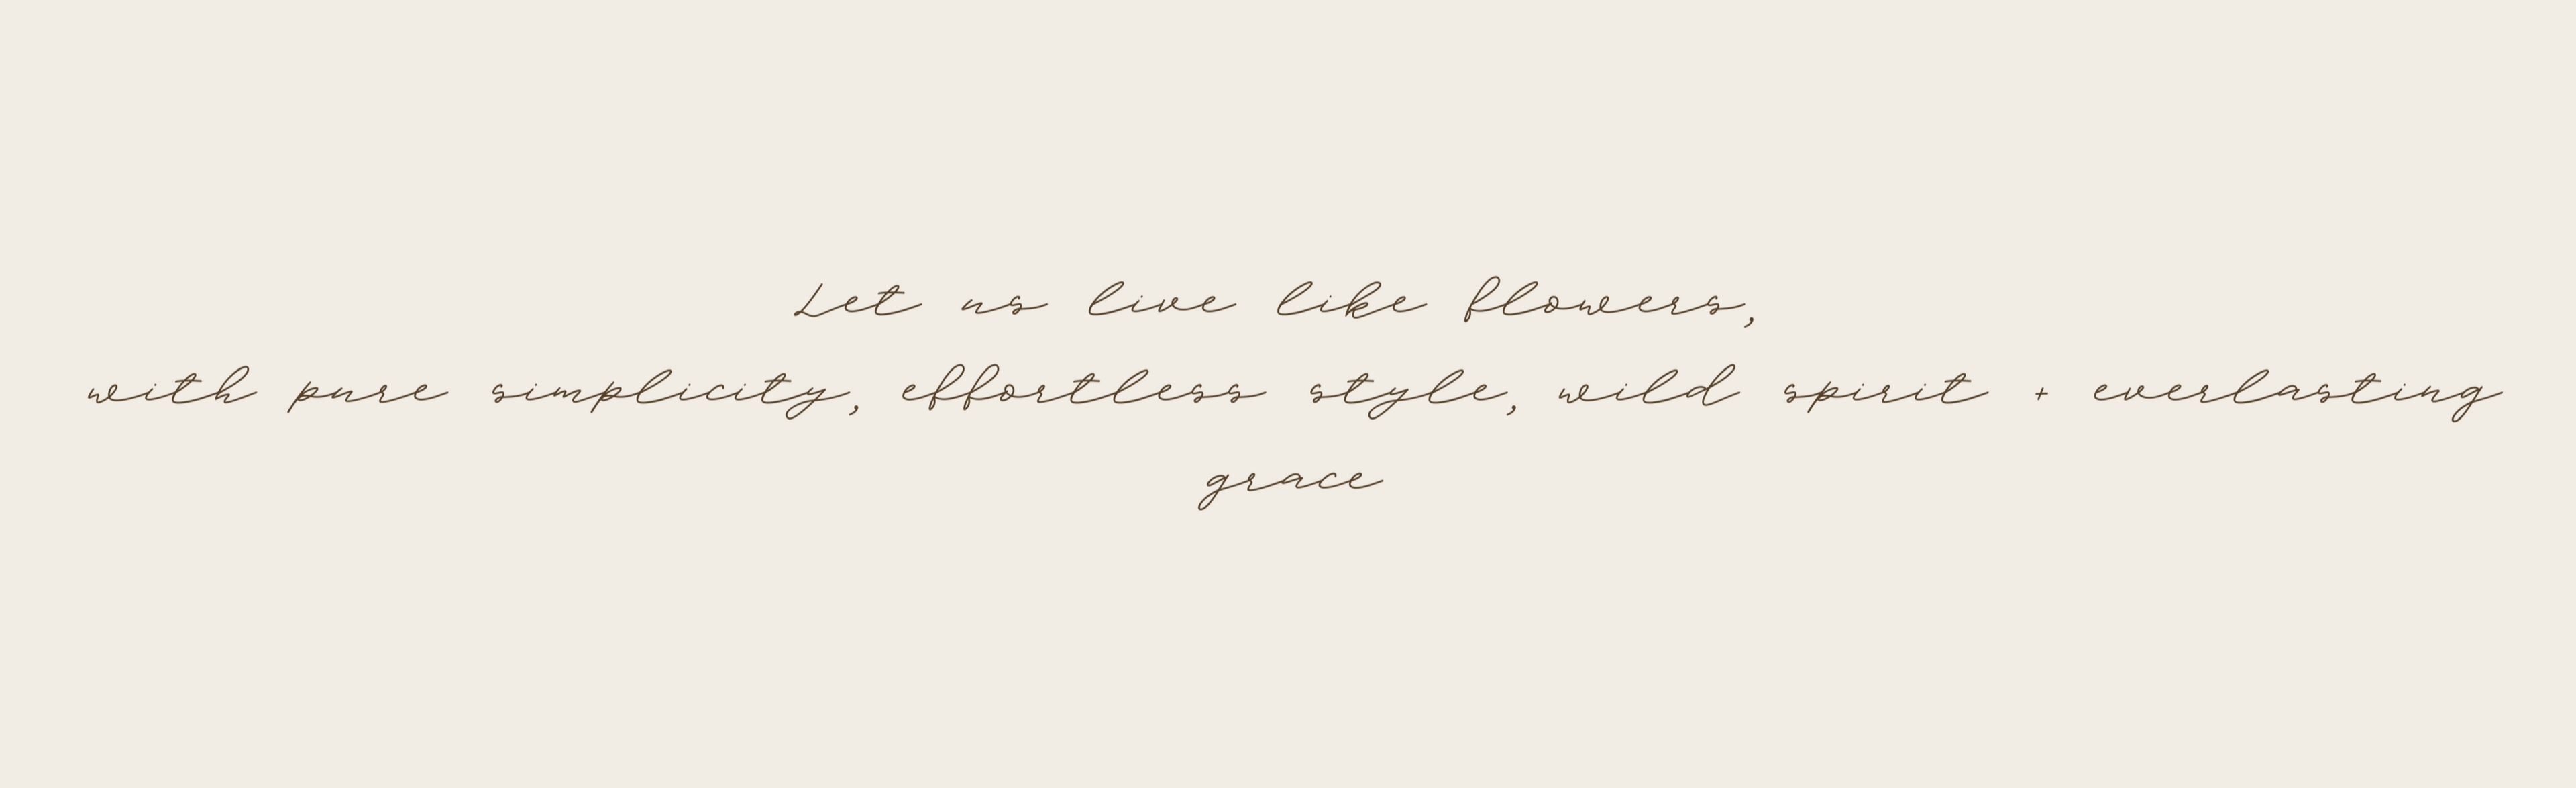 Let us live like flowers,
with pure simplicity, effortless style, wild spirit + everlasting
grace